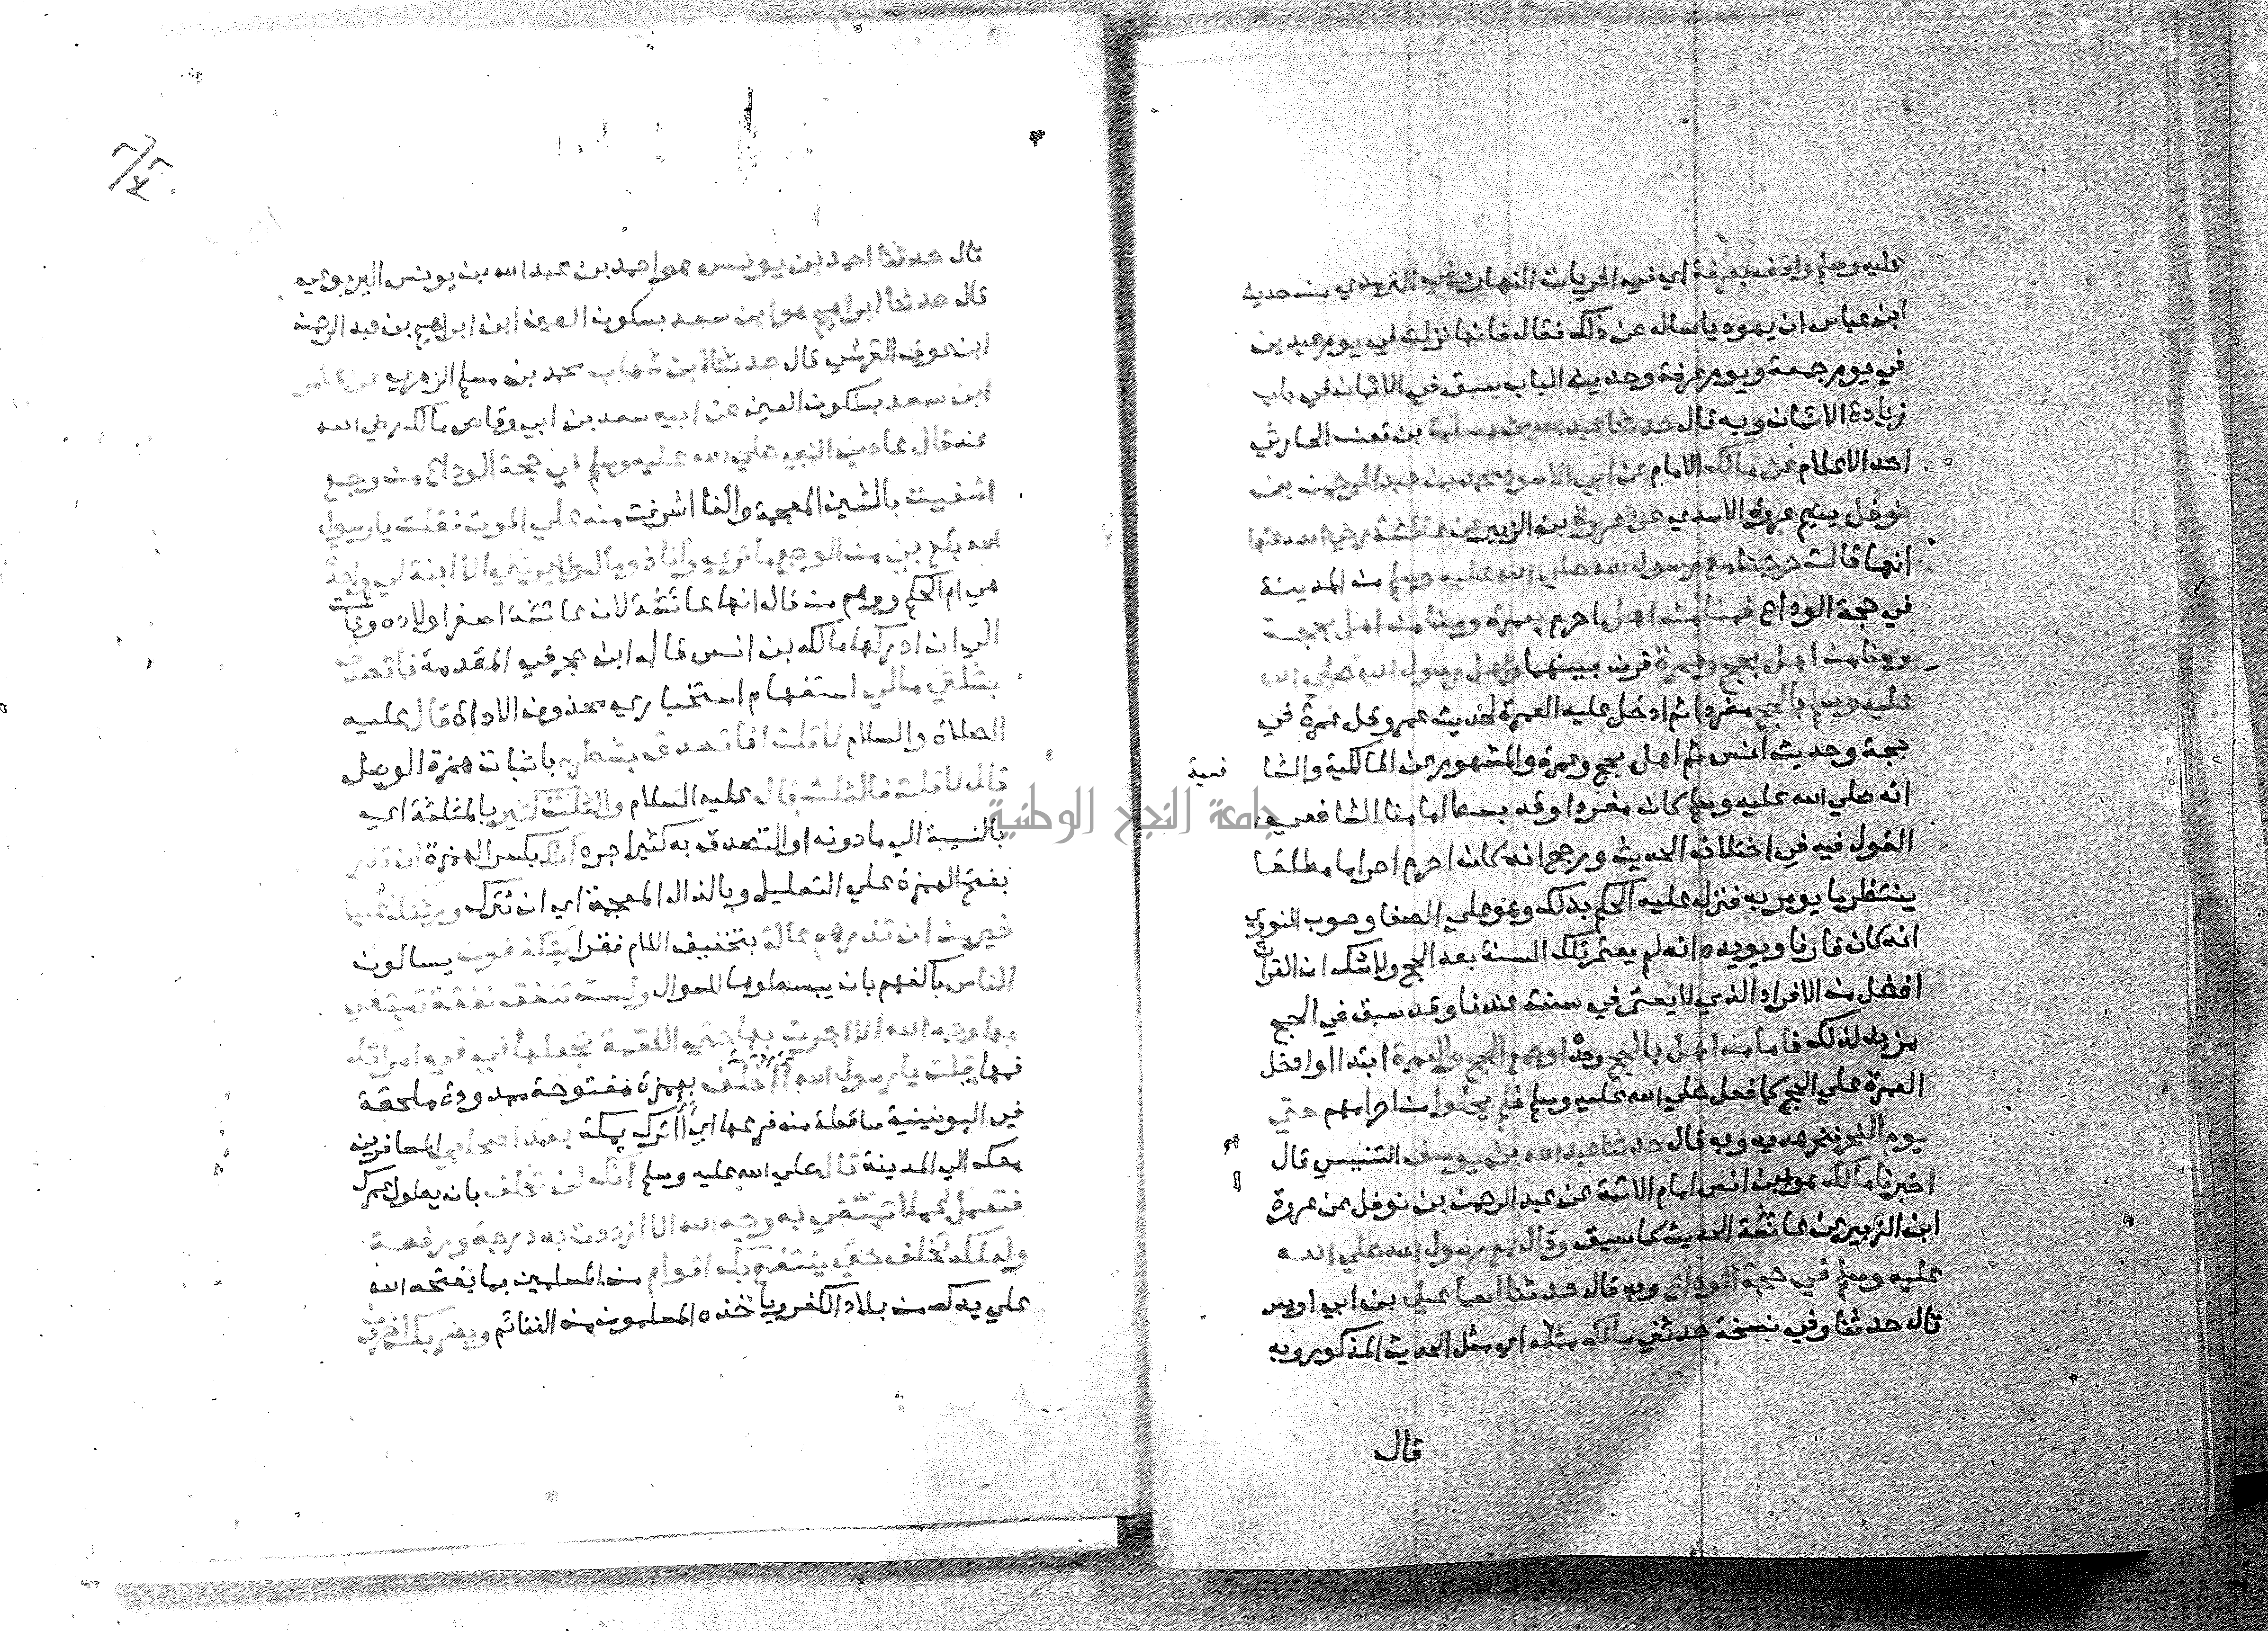 عليه وسلم واقف بعرفة اي في اخريات النهار وفي الترمذي من حديث
ابن عباس ان يهوديا ساله عن ذلك فقال فانها نزلت في يوم عيدين
في يوم جمعة ويوم عرفة وحديث الباب سبق في الايمان في باب
زيادة الايمان وبه قال حدثنا عبد الله بن مسلمة بن قعنب الحارثي
احد الاعلام عن مالك الامام عن ابي الاسود محمد بن عبد الرحمن بن
نوفل يتيم عروة الاسدي عن عروة بن الزبير عن عائشة رضي الله عنها
انها قالت خرجنا مع رسول الله صلي الله عليه وسلم من المدينة
في حجة الوداع فمنا من اهل احرم بعمرة ومنا من اهل بحجة
ومنا من اهل بحج وعمرة قرن بينهما واهل رسول الله صلي الله
عليه وسلم بالحج مفردا ثم ادخل عليه العمرة لحديث عمر وقل عمرة في
حجة وحديث انس ثم اهل بحج وعمرة والمشهور عن المالكية والشا فعية
انه صلي الله عليه وسلم كان مفردا وقد بسط امامنا الشافعي
القول فيه في اختلاف الحديث ورجح انه كان احرم احراما مطلقا
ينتظر ما يومر به فنزل عليه الحكم بذلك وهو علي الصفا وصوب النووي
انه كان قارنا ويويده انه لم يعتمر تلك السنة بعد الحج ولا شك ان القران
افضل من الافراد الذي لا يعتمر في سنته عندنا وقد سبق في الحج
مزيد لذلك فاما من اهل بالحج وحده او جمع الحج والعمرة ابتدا او ادخل
العمرة علي الحج كما فعل صلي الله عليه وسلم فلم يحلوا من احرامهم حتي
يوم النحر فنحر هديه وبه قال حدثنا عبد الله بن يوسف التنيسي قال
اخبرنا مالك هو ابن انس امام الائمة عن عبد الرحمن بن نوفل عن عروة
ابن الزبير عن عائشة الحديث كما سبق وقال مع رسول الله صلي الله
عليه وسلم في حجة الوداع وبه قال حدثنا اسماعيل بن ابي اويس
قال حدثنا وفي نسخة حدثني مالك مثله اي مثل الحديث المذكور وبه
قال
قال حدثنا احمد بن يونس هو احمد بن عبد الله بن يونس اليربوعي
قال حدثنا ابراهيم هو ابن سعد بسكون العين ابن ابراهيم بن عبد الرحمن
ابن عوف القرشي قال حدثنا ابن شهاب محمد بن مسلم الزهري عن عامر
ابن سعد بسكون العين عن ابيه سعد بن ابي وقاص مالك رضي الله
عنه قال عادني النبي صلي الله عليه وسلم في حجة الوداع من وجع
اشفيت بالشين المعجمة والفا اشرفت منه علي الموت فقلت يا رسول
الله بلغ بي من الوجع ما تري وانا ذو مال ولا يرثني الا ابنة لي واحدة
هي ام الحكم ووهم من قال انها عائشة لان عائشة اصغر اولاده وعاشت
الي ان ادركها مالك بن انس قاله ابن حجر في المقدمة فاتصدق
بثلثي مالي استفهام استخباري محذوف الاداة قال عليه
الصلاة والسلام لا قلت افاتصدق بشطره باثبات همزة الوصل
قال لا قلت فالثلث قال عليه السلام والثلث كثير بالمثلثة اي
بالنسبة الي ما دونه او التصدق به كثير اجره انك بكسر الهمزة ان تذر
بفتح الهمزة علي التعليل وبالذال المعجمة اي ان تترك ورثتك اغنيا
خير من ان تذرهم عالة بتخفيف اللام فقرا يتكففون يسالون
الناس باكفهم بان يبسطوها للسوال ولست تنفق نفقة تبتغي
بها وجه الله الا اجرت بها حتي اللقمة تجعلها في في امراتك
فمها قلت يا رسول الله آاخلف بهمزة مفتوحة ممدودة ملحقة
في اليونينية ساقطة من فرعها اي أاترك بمكة بعد اصحابي المسافرين
معك الي المدينة قال صلي الله عليه وسلم انك لن تخلف بان يطول عمرك
فتعمل عملا تبتغي به وجه الله الا ازددت به درجة ورفعة
ولعلك تخلف حتي ينتفع بك اقوام من المسلمين بما يفتحه الله
علي يدك من بلاد الكفر وياخذه المسلمون من الغنائم ويضر بك اخرون
جامعة النجاح الوطنية